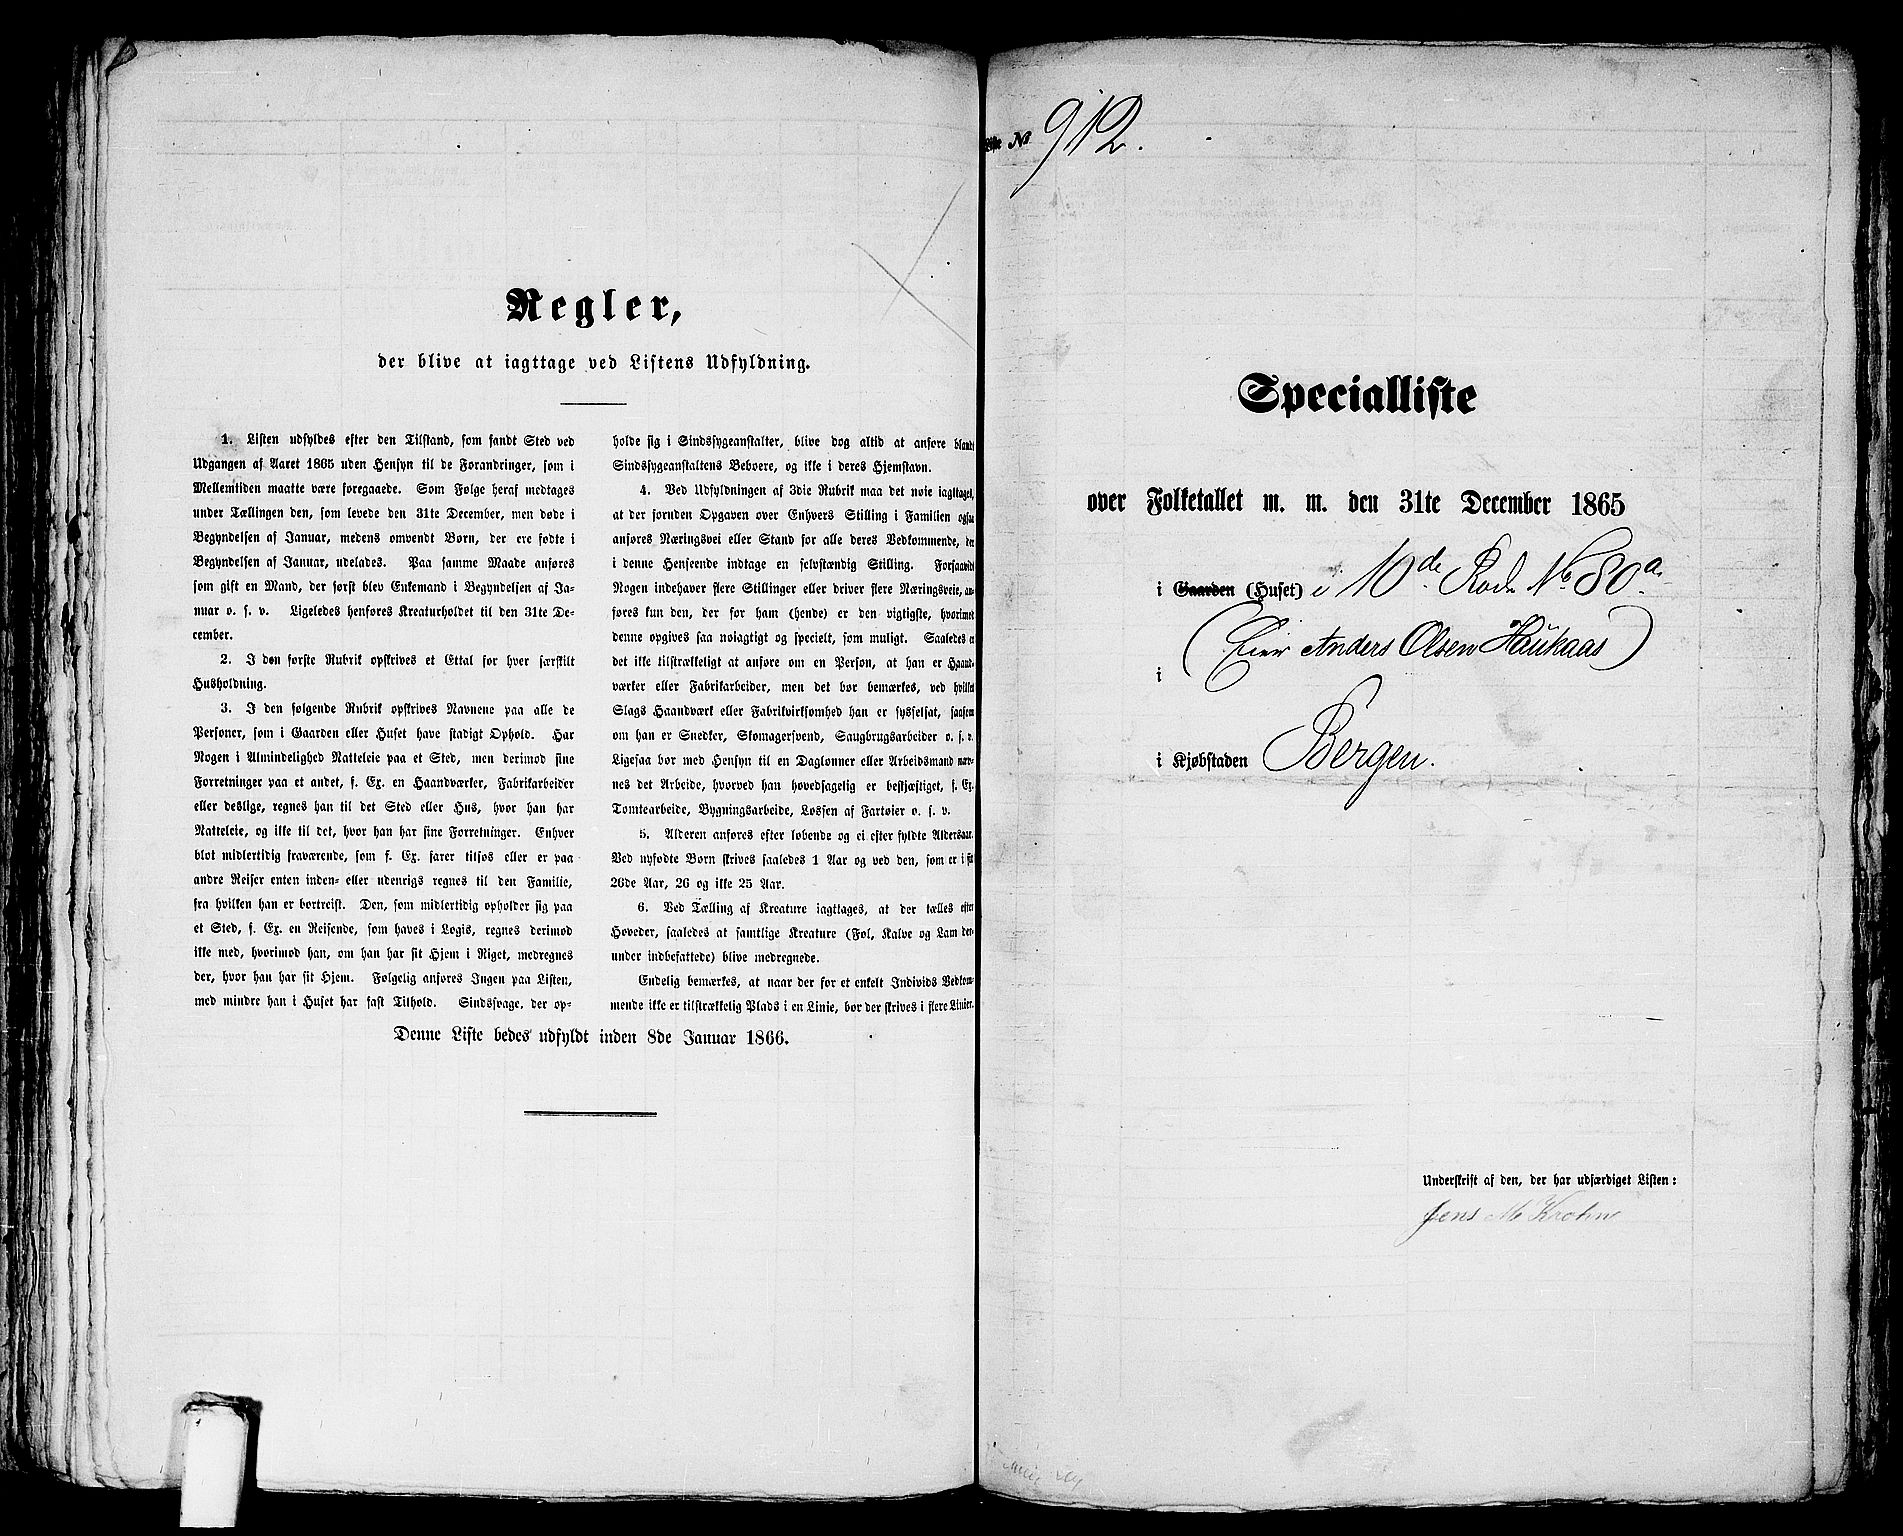 Regler,
der blive at iagttage ved Listens Udfyldning.
1. Listen udfyldes efter den Tilstand, som fandt Sted ved
Udgangen af Aaret 1865 uden Hensyn til de Forandringer, som i
Mellemtiden maatte være foregaaede. Som Følge heraf medtages
under Tællingen den, som levede den 31te December, men døde i
Begyndelsen af Januar, medens omvendt Børn, der ere fødte i
Begyndelsen af Januar, udelades. Paa samme Maade anføres
som gift en Mand, der først blev Enkemand i Begyndelsen af Ja-
nuar o. s. v. Ligeledes henføres Kreaturholdet til den 31te De-
cember.
2. I den første Rubrik opskrives et Ettal for hver særskilt
Husholdning.
3. I den følgende Rubrik opskrives Navnene paa alle de
Personer, som i Gaarden eller Huset have stadigt Ophold. Har
Nogen i Almindelighed Natteleie paa et Sted, men derimod sine
Forretninger paa et andet, f. Ex. en Haandværker, Fabrikarbeider
eller deslige, regnes han til det Sted eller Hus, hvor han har
Natteleie, og ikke til det, hvor han har sine Forretninger. Enhver
blot midlertidig fraværende, som f. Ex. farer tilsøs eller er paa
andre Reiser enten inden- eller udenrigs regnes til den Familie,
fra hvilken han er bortreist. Den, som midlertidig opholder sig paa
et Sted, f. Ex. en Reisende, som haves i Logis, regnes derimod
ikke med, hvorimod han, om han har sit Hjem i Riget, medregnes
der, hvor han har sit Hjem. Følgelig anføres Ingen paa Listen,
med mindre han i Huset har fast Tilhold. Sindssvage, der op-
holde sig i Sindssygeanstalter, blive dog altid at anføre blandt
Sindssygeanstaltens Beboere, og ikke i deres Hjemstavn.
4. Ved Udfyldningen af 3die Rubrik maa det nøie iagttages,
at der foruden Opgaven over Enhvers Stilling i Familien ogsaa
anføres Næringsvei eller Stand for alle deres Vedkommende, der
i denne Henseende indtage en selvstændig Stilling. Forsaavidt
Nogen indehaver flere Stillinger eller driver flere Næringsveie, an-
føres kun den, der for ham (hende) er den vigtigste, hvorimod
denne opgives saa nøiagtigt og specielt, som muligt. Saaledes er
det ikke tilstrækkeligt at anføre om en Person, at han er Haand-
værker eller Fabrikarbeider, men det bør bemærkes, ved hvilket
Slags Haandværk eller Fabrikvirksomhed han er sysselsat, saasom
om han er Snedker, Skomagersvend, Saugbrugsarbeider o. s. v.
Ligesaa bør med Hensyn til en Dagløuner eller Arbeidsmand næv-
nes det Arbeide, hvorved han hovedsagelig er beskjæftiget, f. Ex.
Tomtearbeide, Bygningsarbeide, Lossen af Fartøier o. s. v.
5. Alderen anføres efter løbende og ei efter fyldte Aldersaar.
Ved nyfødte Børn skrives saaledes 1 Aar og ved den, som er i sit
26de Aar, 26 og ikke 25 Aar.
6. Ved Tælling af Kreature iagttages, at der tælles efter
Hoveder, saaledes at samtlige Kreature (Føl, Kalve og Lam der-
under indbefattede) blive medregnede.
Endelig bemærkes, at naar der for et enkelt Individs Vedkom-
mende ikke er tilstrækkelig Plads i en Linie, bør der skrives i flere Linier.
Denne Liste bedes udfyldt inden 8de Januar 1866.
Liste No 912.
Specialliste
over Folketallet m. m. den 31te December 1865
i Gaarden (Huset) i 10de Rode No 80a.
(Eier Anders Olsen Haukaas)
i
i Kjøbstaden Bergen.
Underskrift af den, der har udfærdiget Listen:
Jens M Krohn